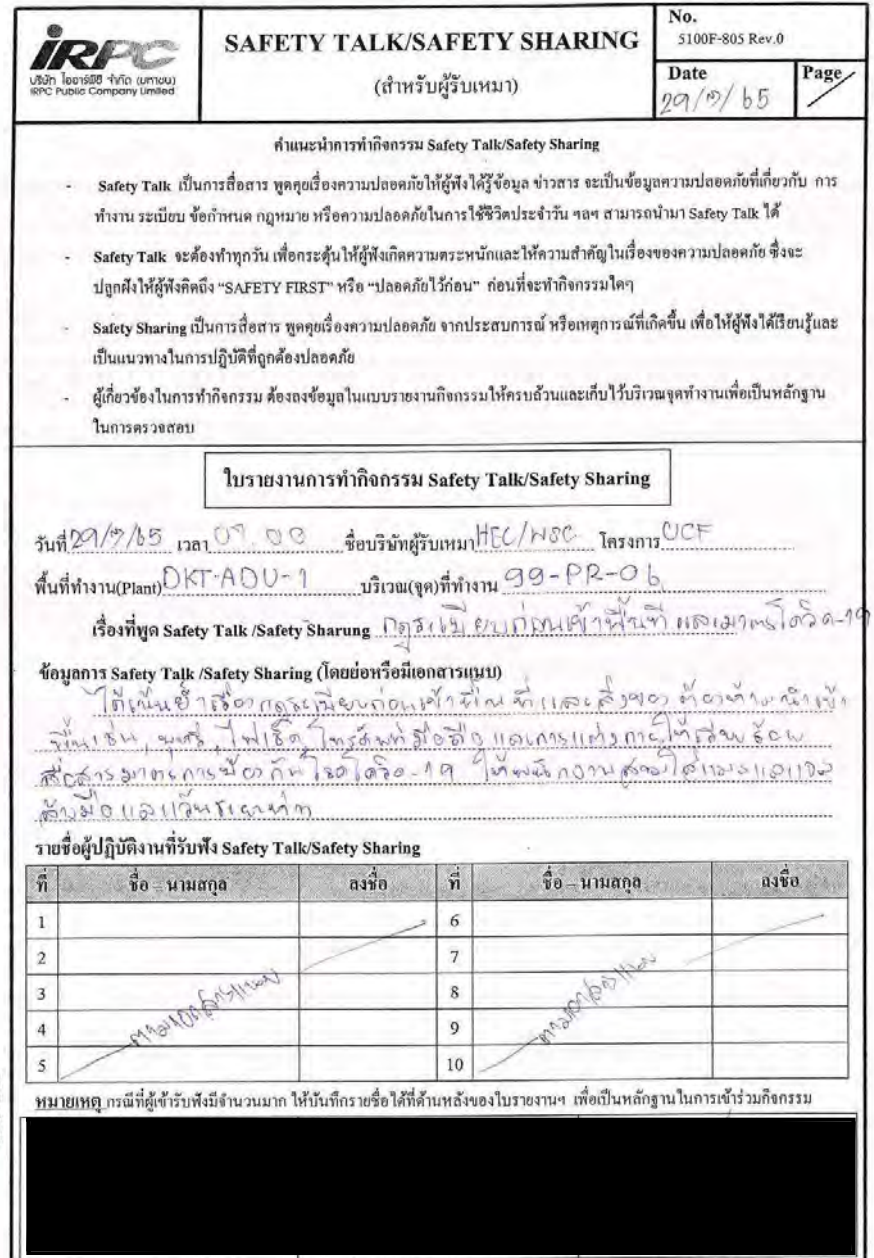 IRPC
บริษัท ไออาร์พีซี จำกัด (มหาชน)
IRPC Public Company Limited
SAFETY TALK/SAFETY SHARING
(สำหรับผู้รับเหมา)
No.
5100F-805 Rev.0
Date
Page
29/ /65
คำแนะนำการทำกิจกรรม Safety Talk/Safety Sharing
- Safety Talk เป็นการสื่อสาร พูดคุยเรื่องความปลอดภัยให้ผู้ฟังได้รู้ข้อมูล ข่าวสาร จะเป็นข้อมูลความปลอดภัยที่เกี่ยวกับ การ
ทำงาน ระเบียบ ข้อกำหนด กฎหมาย หรือความปลอดภัยในการใช้ชีวิตประจำวัน ฯลฯ สามารถนำมา Safety Talk ได้
- Safety Talk จะต้องทำทุกวัน เพื่อกระตุ้นให้ผู้ฟังเกิดความตระหนักและให้ความสำคัญในเรื่องของความปลอดภัย ซึ่งจะ
ปลูกฝังให้ผู้ฟังคิดถึง “SAFETY FIRST” หรือ “ปลอดภัยไว้ก่อน” ก่อนที่จะทำกิจกรรมใดๆ
- Safety Sharing เป็นการสื่อสาร พูดคุยเรื่องความปลอดภัย จากประสบการณ์ หรือเหตุการณ์ที่เกิดขึ้น เพื่อให้ผู้ฟังได้เรียนรู้และ
เป็นแนวทางในการปฏิบัติที่ถูกต้องปลอดภัย
- ผู้เกี่ยวข้องในการทำกิจกรรม ต้องลงข้อมูลในแบบรายงานกิจกรรมให้ครบถ้วนและเก็บไว้บริเวณจุดทำงานเพื่อเป็นหลักฐาน
ในการตรวจสอบ
ใบรายงานการทำกิจกรรม Safety Talk/Safety Sharing
วันที่ 29/ /65 เวลา 07.00 ชื่อบริษัทผู้รับเหมา HEC/WSC โครงการ UCF
พื้นที่ทำงาน(Plant) DKT-ADU-1 บริเวณ(จุด)ที่ทำงาน 99-PR-06
เรื่องที่พูด Safety Talk /Safety Sharung กฎระเบียบก่อนเข้าพื้นที่ และมาตรโควิด-19
ข้อมูลการ Safety Talk /Safety Sharing (โดยย่อหรือมีเอกสารแนบ)
ได้เน้นย้ำเรื่องกฎระเบียบก่อนเข้าพื้นที่และสิ่งของต้องห้ามนำเข้า
พื้นเช่น, บุหรี่, ไฟเช็ค, โทรศัพท์มือถือ และการแต่งกายให้เรียบร้อย
สื่อสารมาตรการป้องกันโรคโควิด-19 ให้พนักงานสวมใส่แมส
ล้างมือและเว้นระยะห่าง
รายชื่อผู้ปฏิบัติงานที่รับฟัง Safety Talk/Safety Sharing
ที่ ชื่อ – นามสกุล ลงชื่อ ที่ ชื่อ – นามสกุล ลงชื่อ
1 6
2 7
3 8
ตามเอกสารแนบ ตามเอกสารแนบ
4 9
5 10
หมายเหตุ กรณีที่ผู้เข้ารับฟังมีจำนวนมาก ให้บันทึกรายชื่อได้ที่ด้านหลังของใบรายงานฯ เพื่อเป็นหลักฐานในการเข้าร่วมกิจกรรม